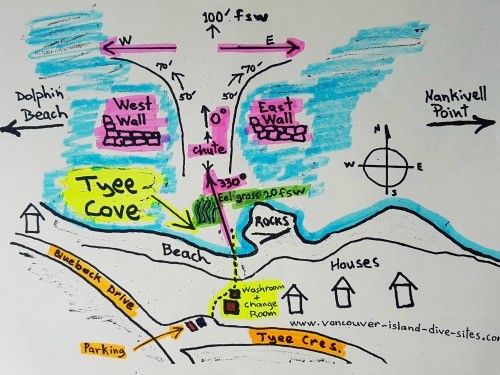 100' fsw
W
E
70'
70'
50'
50'
Dolphin
Beach
West
Wall
East
Wall
Nankivell
Point
0°
Chute
N
W
E
S
330°
Tyee
Cove
Eel grass 20 fsw
ROCKS
Beach
Houses
Blueback Drive
Washroom
+
Change
Room
www.vancouver-island-dive-sites.com
Parking
Tyee Cres.